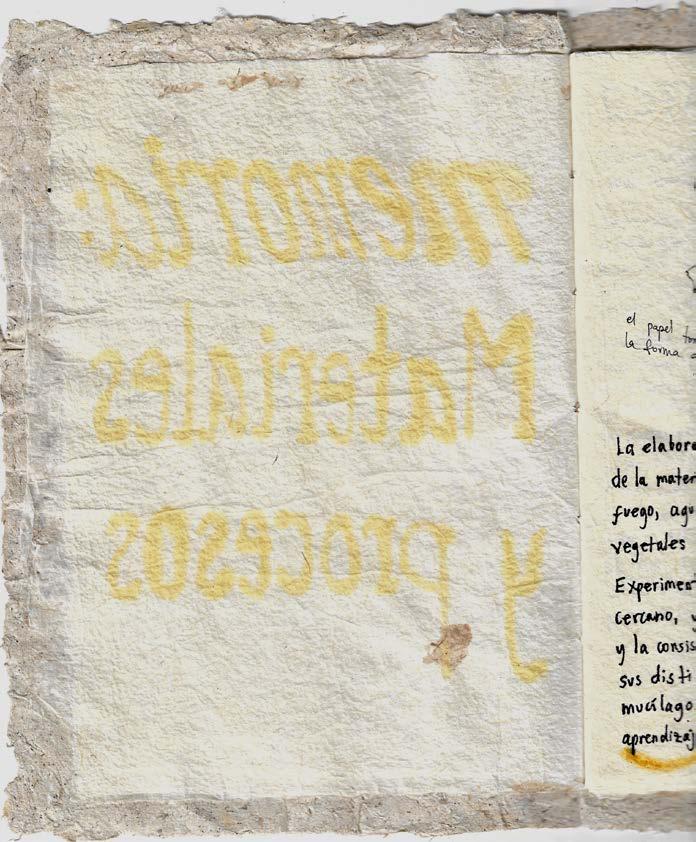 memoria:
Materiales
y procesos
el papel
la forma
La elabora
de la mater
fuego, agu
vegetales
Experimen
cercano, y
y la consis
sus disti
mucílago
aprendizaj